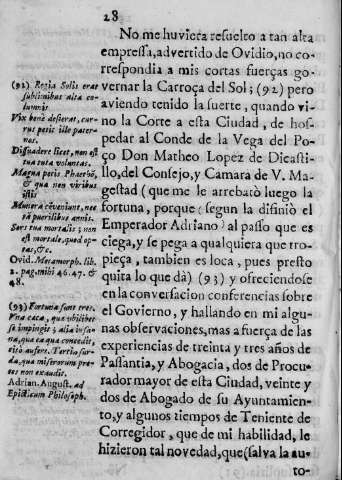 28
No me huviera resuelto a tan alta
empressa, advertido de Ovidio, no co-
rrespondia a mis cortas fuerças go-
vernar la Carroça del Sol; (92) pero
aviendo tenido la suerte, quando vi-
no la Corte a esta Ciudad, de hos-
pedar al Conde de la Vega del Po-
ço Don Matheo Lopez de Dicasti-
llo, del Consejo, y Camara de V. Ma-
gestad (que me le arrebatò luego la
fortuna, porque (segun la difiniò el
Emperador Adriano) al passo que es
ciega, y se pega a qualquiera que tro-
pieça, tambien es loca, pues presto
quita lo que dà) (93) y ofreciendose
en la conversacion conferencias sobre
el Govierno, y hallando en mi algu-
nas observaciones, mas a fuerça de las
experiencias de treinta y tres años de
Passantia, y Abogacia, dos de Procu-
rador mayor de esta Ciudad, veinte y
dos de Abogado de su Ayuntamien-
to, y algunos tiempos de Teniente de
Corregidor, que de mi habilidad, le
hizieron tal novedad, que (salva la au-
to-
(92) Regia Solis erat
sublimibus alta co-
lumnis.
Vix benè desierat, cur-
rus petit ille pater-
nos.
Dissuadere licet, non est
tua tuta voluntas.
Magna petis Phaethõ,
& quæ non viribus
istis
Munera cõveniunt, nec
tà puerilibus annis.
Sors tua mortalis; non
est mortale, quod op-
tas, &c.
Ovid. Metamorph. lib.
2. pag. mihi 46. 47. &
48.
(93) Fortunæ sunt tres.
Una cæca, quæ ubilibet
se impingit; alia insa-
na, quæ ea quæ concedit,
citò aufert. Tertia sur-
da, quæ miserorum pre-
ces non exaudit.
Adrian. August. ad
Epicticum Philosoph.